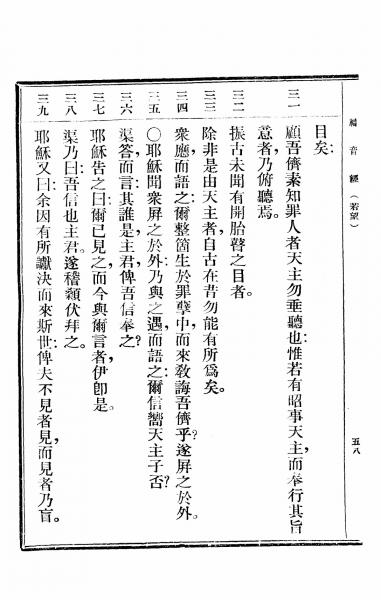 福音經（若望）
五八
目矣：
三一 顧吾儕素知罪人者天主勿垂聽也；惟若有昭事天主，而奉行其旨
意者，乃俯聽焉。
三二 振古未聞有開胎瞽之目者。
三三 除非是由天主者，自古在昔勿能有所爲矣。
三四 衆應而語之：爾整箇生於罪孽中，而來敎誨吾儕乎？遂屏之於外。
三五 〇耶穌聞衆屏之於外，乃與之遇，而語之：爾信嚮天主子否？
三六 渠答而言：其誰是，主君，俾吾信奉之？
三七 耶穌告之曰：爾已見之，而今與爾言者伊卽是。
三八 渠乃曰：吾信也主君。遂稽顙伏拜之。
三九 耶穌又曰：余因有所讞決而來斯世，俾夫不見者見，而見者乃盲。